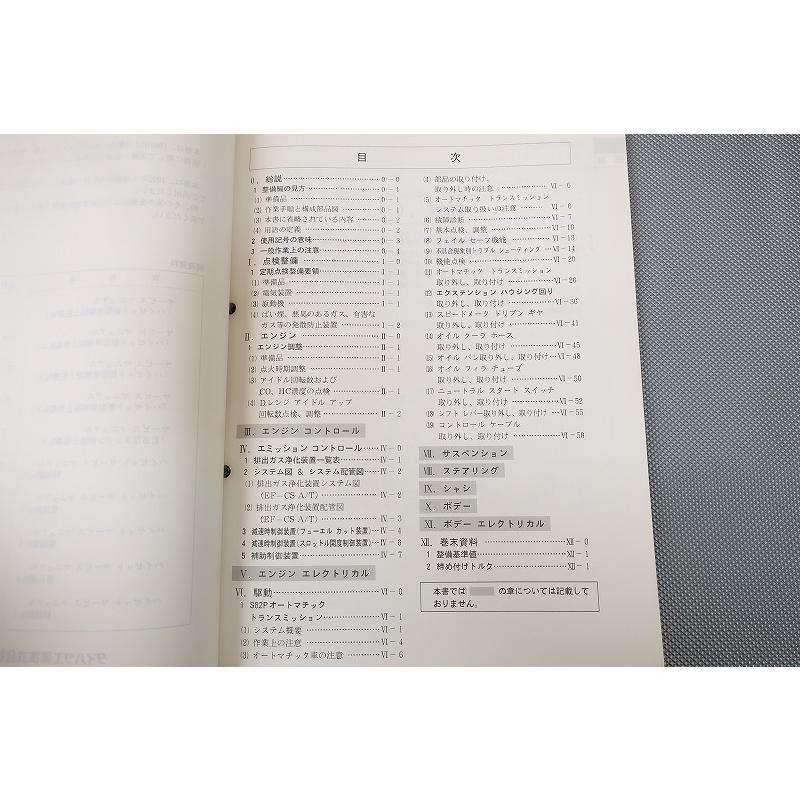 目 次
0．総説……………………0－0
1 整備編の見方……………0－1
⑴ 準備品……………………0－1
⑵ 作業手順と構成部品図……0－1
⑶ 本書に省略されている内容……0－2
⑷ 用語の定義………………0－2
2 使用記号の意味……………0－3
3 一般作業上の注意…………0－4
Ⅰ．点検整備…………………Ⅰ－0
1 定期点検整備要領…………Ⅰ－1
⑴ 準備品……………………Ⅰ－1
⑵ 電気装置…………………Ⅰ－1
⑶ 原動機……………………Ⅰ－1
⑷ ばい煙、悪臭のあるガス、有害な
ガス等の発散防止装置………Ⅰ－2
Ⅱ．エンジン…………………Ⅱ－0
1 エンジン調整………………Ⅱ－1
⑴ 準備品……………………Ⅱ－1
⑵ 点火時期調整……………Ⅱ－1
⑶ アイドル回転数および
CO、HC濃度の点検…………Ⅱ－1
⑷ Dレンジ アイドル アップ
回転数点検、調整……………Ⅱ－2
Ⅲ．エンジン コントロール
Ⅳ．エミッション コントロール……Ⅳ－0
1 排出ガス浄化装置一覧表………Ⅳ－1
2 システム図 & システム配管図……Ⅳ－2
⑴ 排出ガス浄化装置システム図
（EF－CS A/T）……………Ⅳ－2
⑵ 排出ガス浄化装置配管図
（EF－CS A/T）……………Ⅳ－3
3 減速時制御装置（フューエル カット装置）…Ⅳ－4
4 減速時制御装置（スロットル開度制御装置）…Ⅳ－6
5 補助制御装置………………Ⅳ－7
Ⅴ．エンジン エレクトリカル
Ⅵ．駆動………………………Ⅵ－0
1 S82Pオートマチック
トランスミッション…………Ⅵ－1
⑴ システム概要……………Ⅵ－1
⑵ 作業上の注意……………Ⅵ－4
⑶ オートマチック車の注意……Ⅵ－6
⑷ 部品の取り付け、
取り外し時の注意……………Ⅵ－6
⑸ オートマチック トランスミッション
システム取り扱いの注意………Ⅵ－6
⑹ 故障診断…………………Ⅵ－7
⑺ 基本点検、調整……………Ⅵ－10
⑻ フェイル セーフ機能………Ⅵ－13
⑼ 不具合現象別トラブル シューティング…Ⅵ－14
⑽ 機能点検…………………Ⅵ－20
⑾ オートマチック トランスミッション
取り外し、取り付け…………Ⅵ－26
⑿ エクステンション ハウジング回り
取り外し、取り付け…………Ⅵ－36
⒀ スピードメータ ドリブン ギヤ
取り外し、取り付け…………Ⅵ－41
⒁ オイル クーラ ホース
取り外し、取り付け…………Ⅵ－45
⒂ オイル パン取り外し、取り付け…Ⅵ－48
⒃ オイル フィラ チューブ
取り外し、取り付け…………Ⅵ－50
⒄ ニュートラル スタート スイッチ
取り外し、取り付け…………Ⅵ－52
⒅ シフト レバー取り外し、取り付け…Ⅵ－55
⒆ コントロール ケーブル
取り外し、取り付け…………Ⅵ－58
Ⅶ．サスペンション
Ⅷ．ステアリング
Ⅸ．シャシ
Ⅹ．ボデー
Ⅺ．ボデー エレクトリカル
Ⅻ．巻末資料…………………Ⅻ－0
1 整備基準値………………Ⅻ－1
2 締め付けトルク……………Ⅻ－1
本書では の章については記載して
おりません。